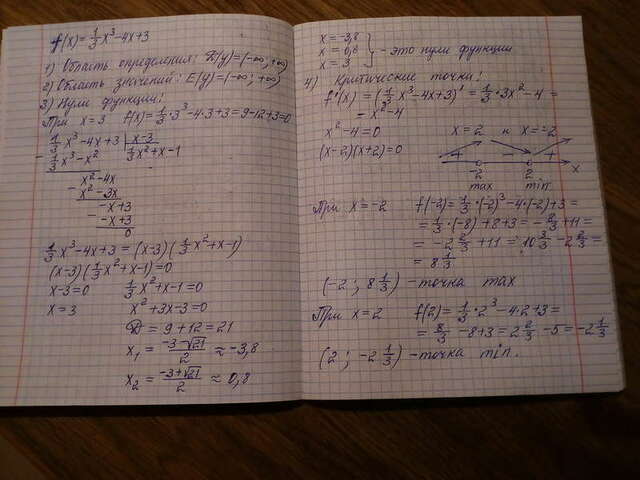 f(x)=1/3x³-4x+3
1) Область определения: D(y)=(-∞;+∞)
2) Область значений: E(y)=(-∞;+∞)
3) Нули функции:
При x=3 f(x)=1/3·3³-4·3+3=9-12+3=0
1/3x³-4x+3 | x-3
- 1/3x³-x² 1/3x²+x-1
x²-4x
- x²-3x
-x+3
- -x+3
0
1/3x³-4x+3=(x-3)(1/3x²+x-1)
(x-3)(1/3x²+x-1)=0
x-3=0 1/3x²+x-1=0
x=3 x²+3x-3=0
D=9+12=21
x₁=(-3-√21)/2≈-3,8
x₂=(-3+√21)/2≈0,8
x=-3,8
x=0,8 } - это нули функции
x=3
4) Критические точки:
f'(x)=(1/3x³-4x+3)'=1/3·3x²-4=
=x²-4
x²-4=0 x=2 и x=-2
(x-2)(x+2)=0
+ - +
-2 2 x
max min
При x=-2 f(-2)=1/3·(-2)³-4·(-2)+3=
=1/3·(-8)+8+3=-8/3+11=
=-2 2/3+11=10 3/3-2 2/3=
=8 1/3
(-2; 8 1/3) - точка max
При x=2 f(2)=1/3·2³-4·2+3=
=8/3-8+3=2 2/3-5=-2 1/3
(2; -2 1/3) - точка min.